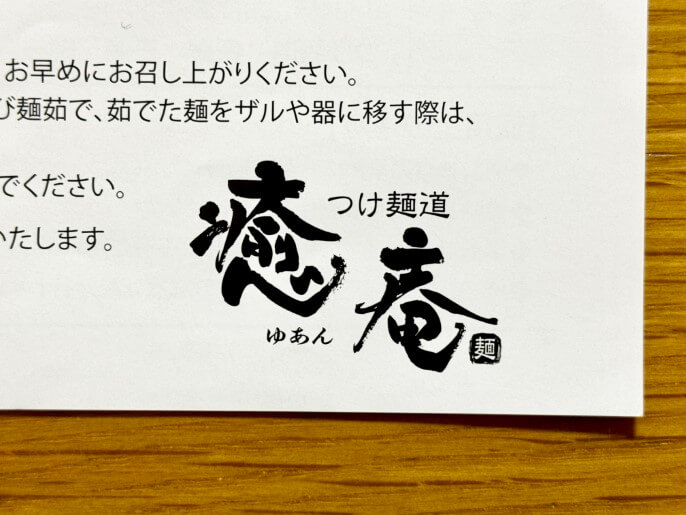 お早めにお召し上がりください。
び麺茹で、茹でた麺をザルや器に移す際は、
でください。
いたします。
つけ麺道
癒庵
ゆあん
麺